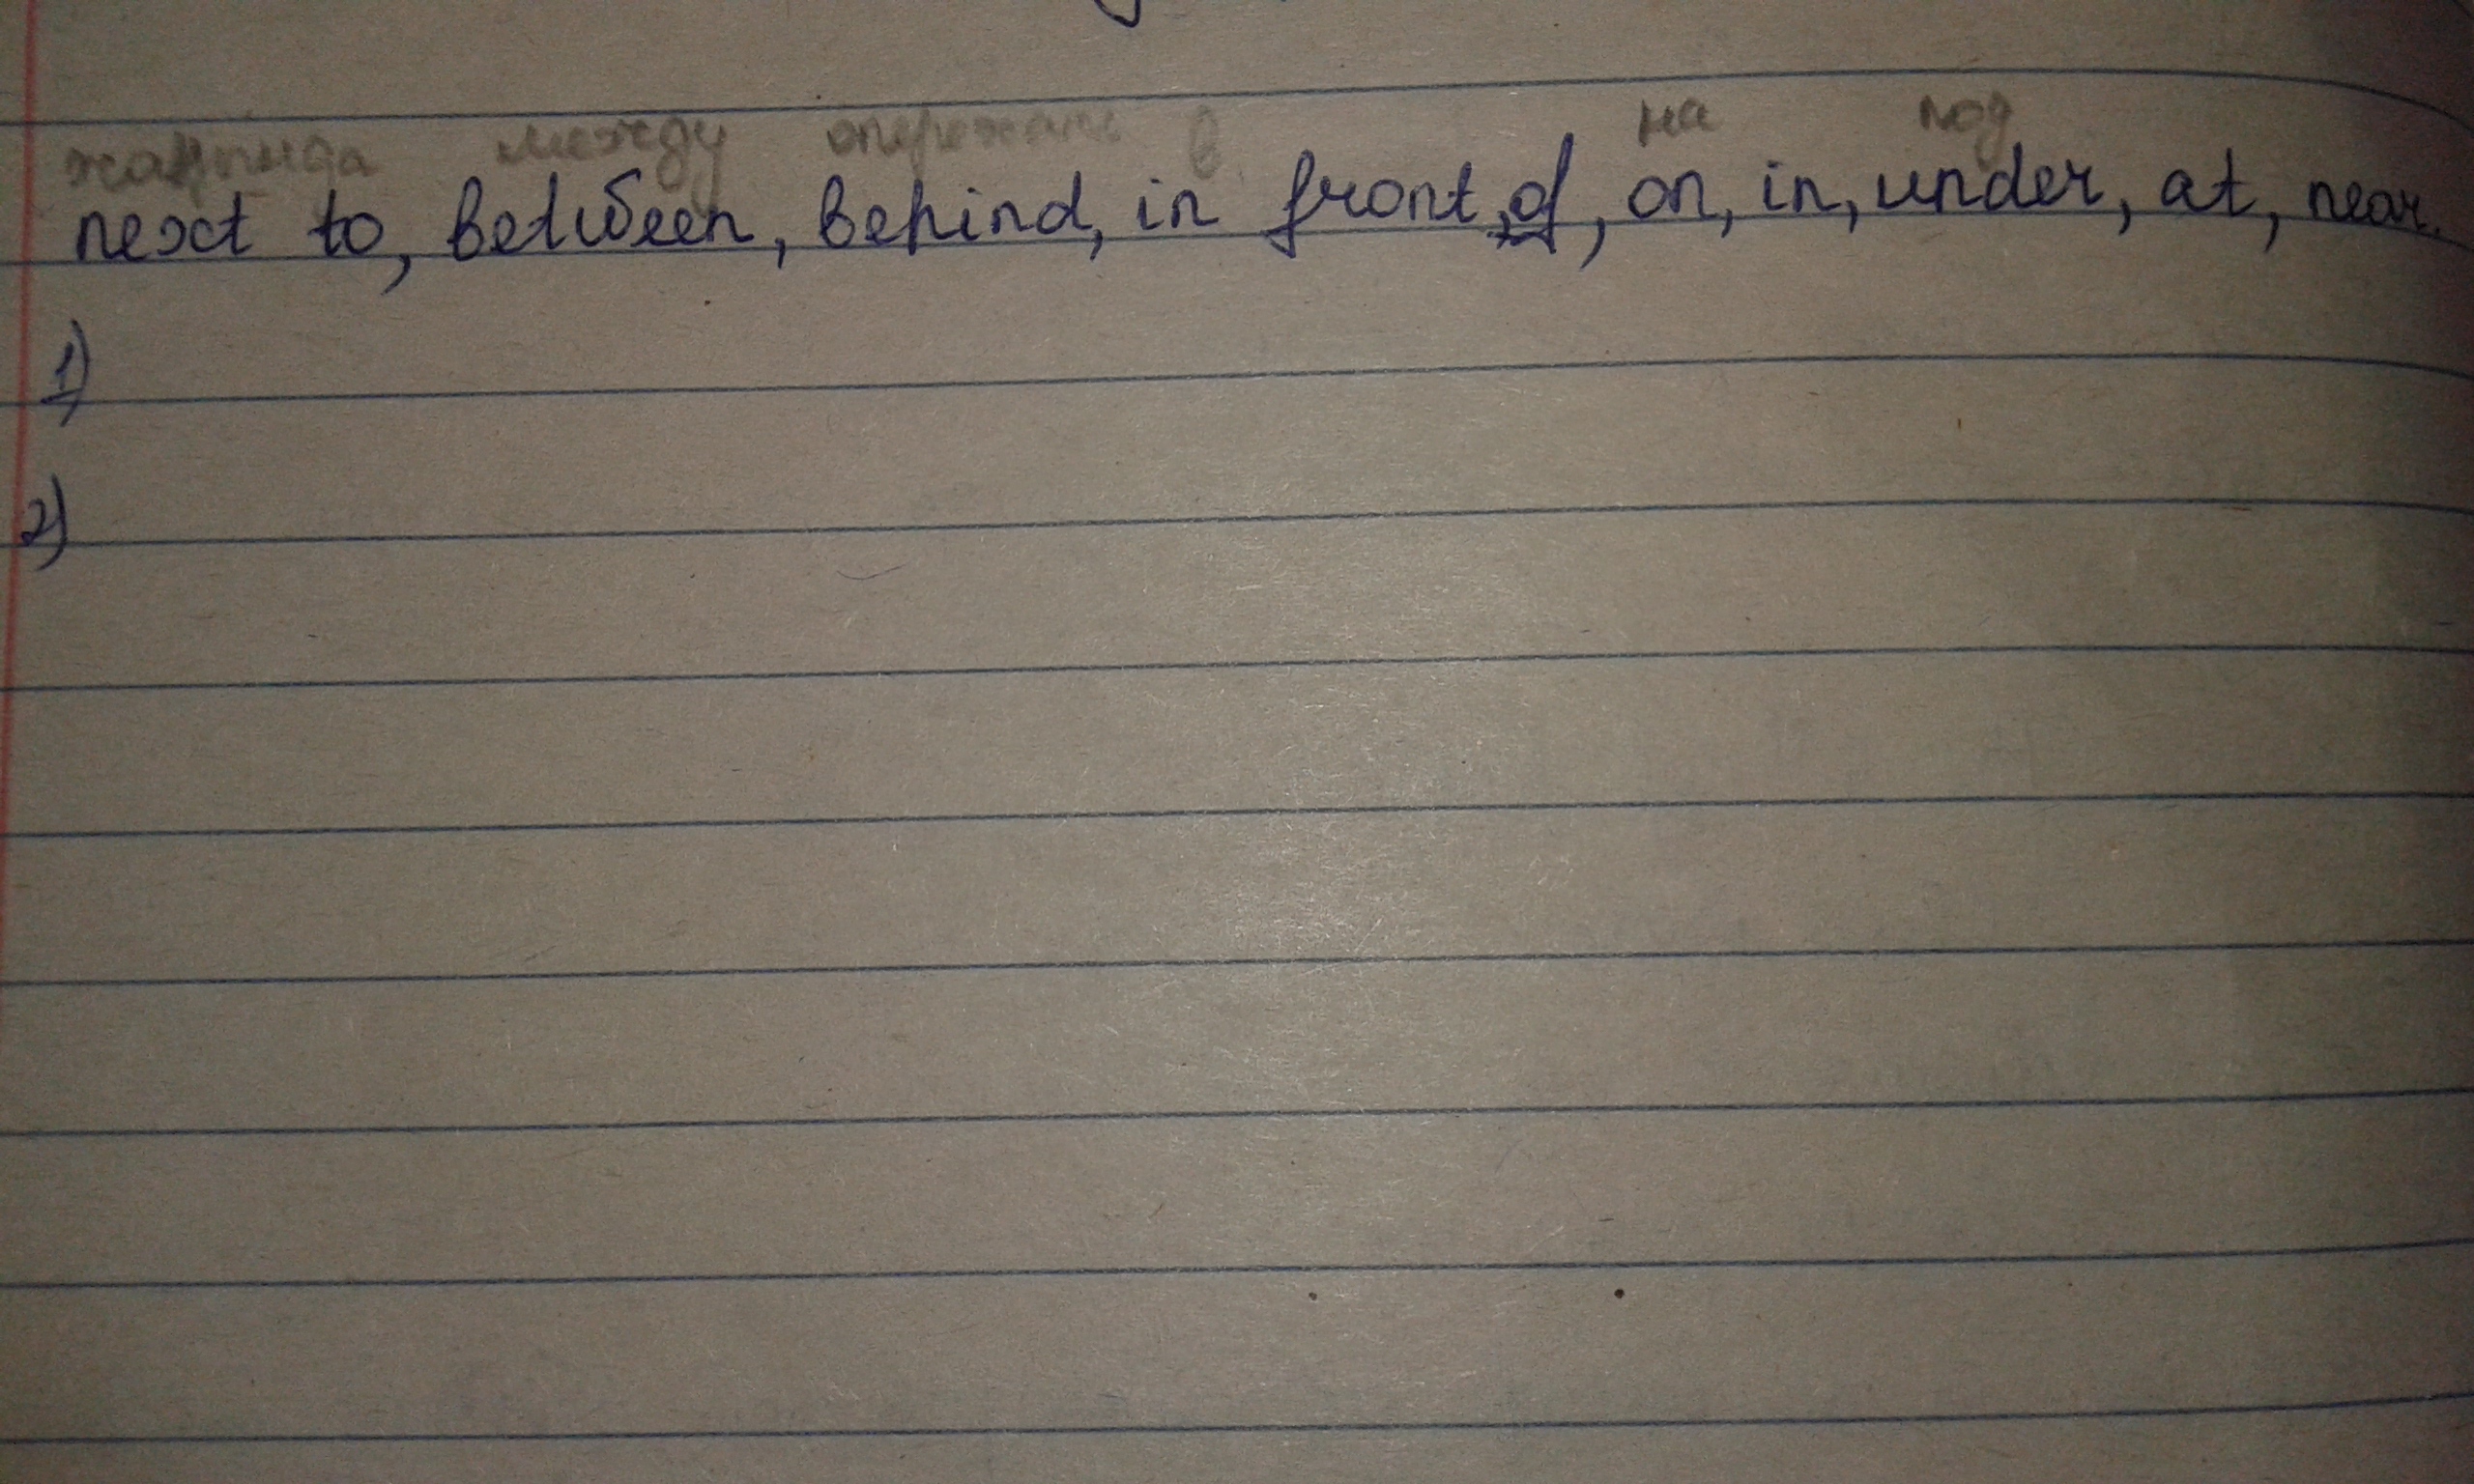 жанында между опережать в на под
next to, between, behind, in front, of, on, in, under, at, near.
1)
2)